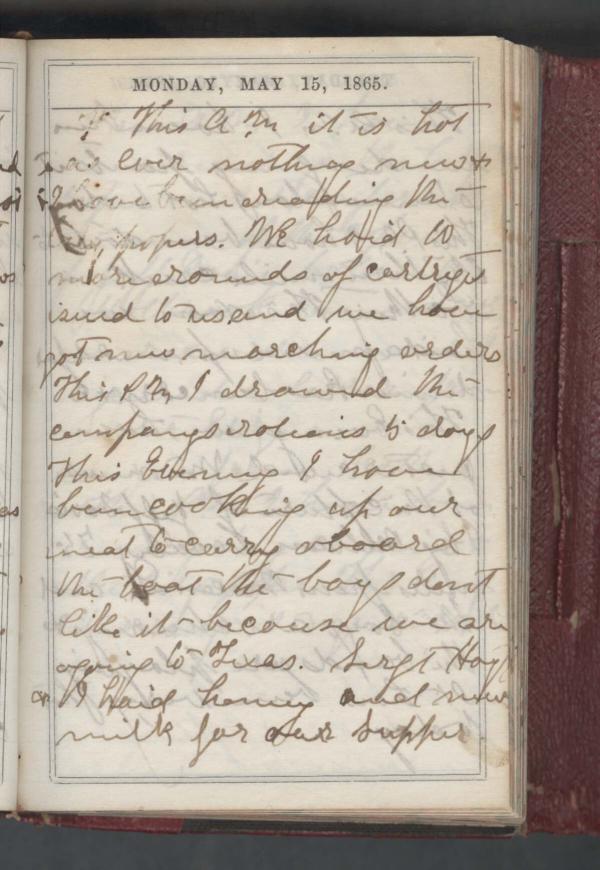 MONDAY, MAY 15, 1865.
This A M it is hot
as ever nothing new &
I have been reading the
papers. We haid 10
more rounds of cartrigs
isued to us and we have
got new marching orders
This P M I drawed the
companys rations 5 days
This Evening I have
been cooking up our
meat to carry aboard
the boat the boys dont
like it because we are
agoing to Texas. Sergt Hoyt
& I haid honey and new
milk for our supper.